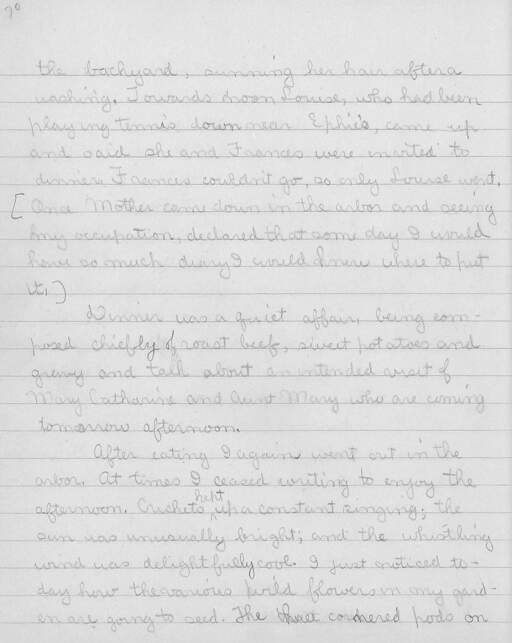 70
the backyard, sunning her hair after a
washing. Towards noon Louise, who had been
playing tennis down near Ephie's, came up
and said she and Frances were invited to
dinner. Frances couldn't go, so only Louise went.
[Once Mother came down in the arbor and seeing
my occupation, declared that some day I would
have so much diary I would know where to put
it.]
Dinner was a quiet affair, being com-
posed chiefly of roast beef, sweet potatoes and
gravy and talk about an intended visit of
Mary Catharine and Aunt Mary who are coming
tomorrow afternoon.
After eating I again went out in the
arbor. At times I ceased writing to enjoy the
afternoon. Crickets kept up a constant singing; the
sun was unusually bright; and the whistling
wind was delightfully cool. I just noticed to-
day how the various wild flowers in my gard-
en are going to seed. The three cornered pods on